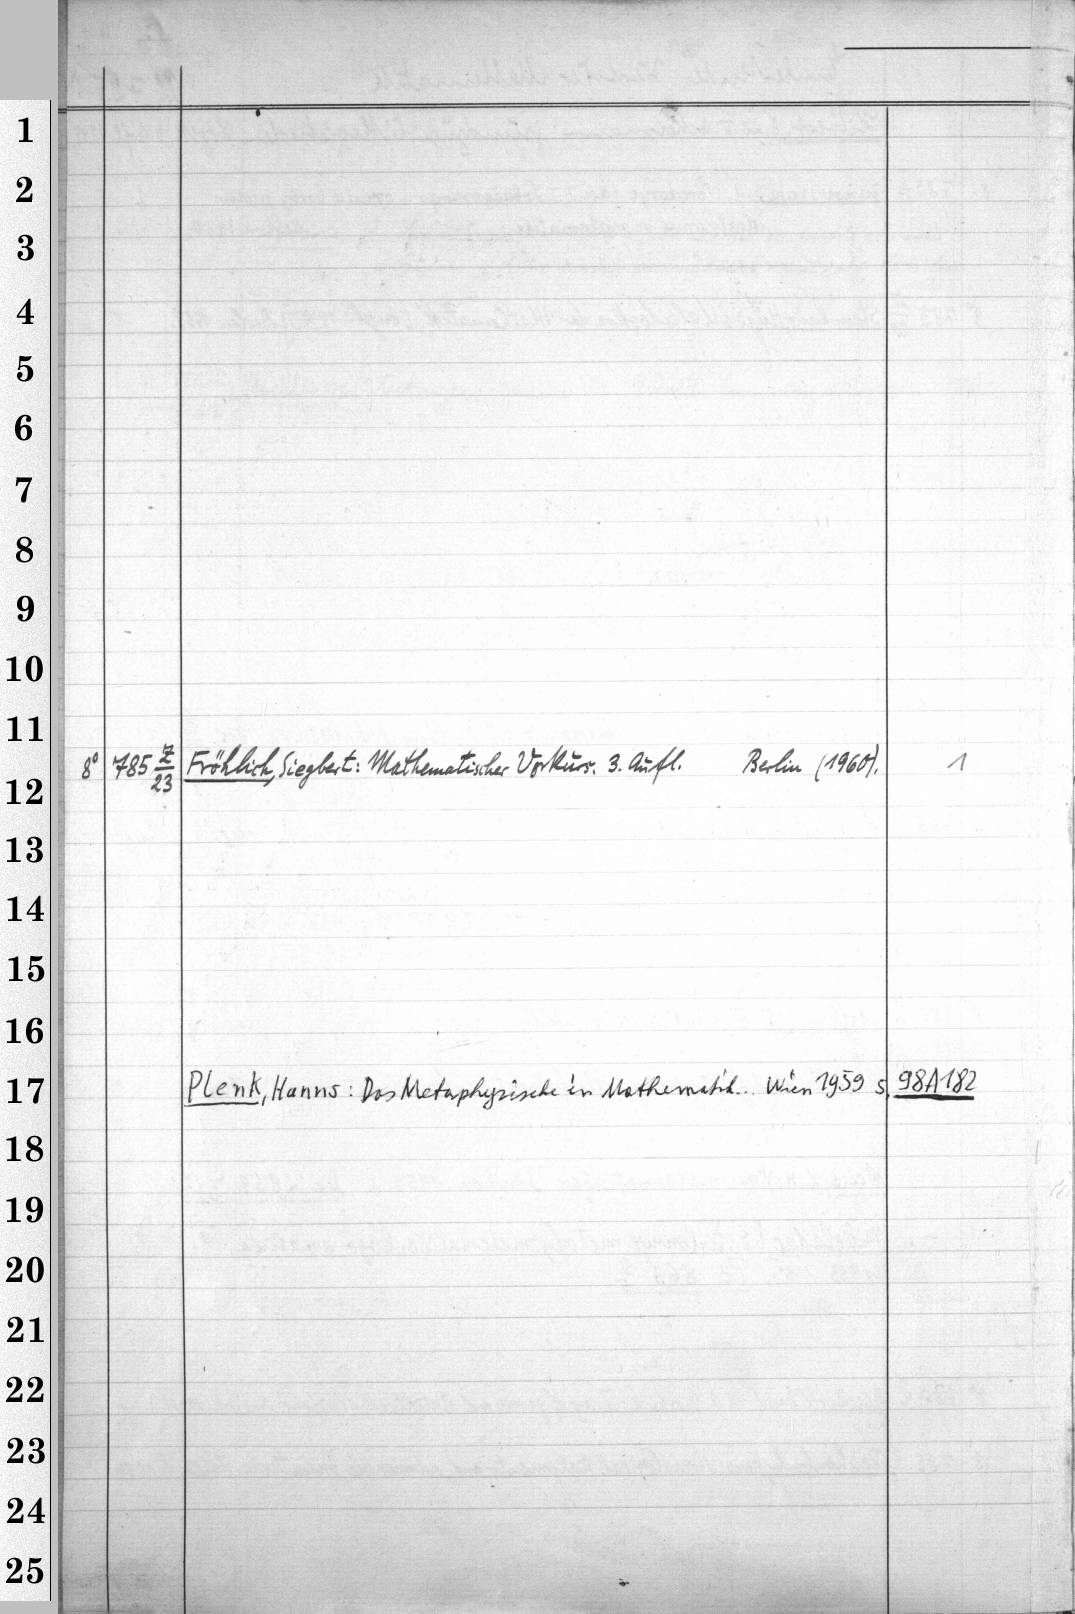 1
2
3
4
5
6
7
8
9
10
11
8° 785 Z/23 Fröhlich, Siegbert: Mathematischer Vorkurs. 3. Aufl. Berlin (1960). 1
12
13
14
15
16
17 Plenk, Hanns: Das Metaphysische in Mathematik... Wien 1959 s. 98A182
18
19
20
21
22
23
24
25